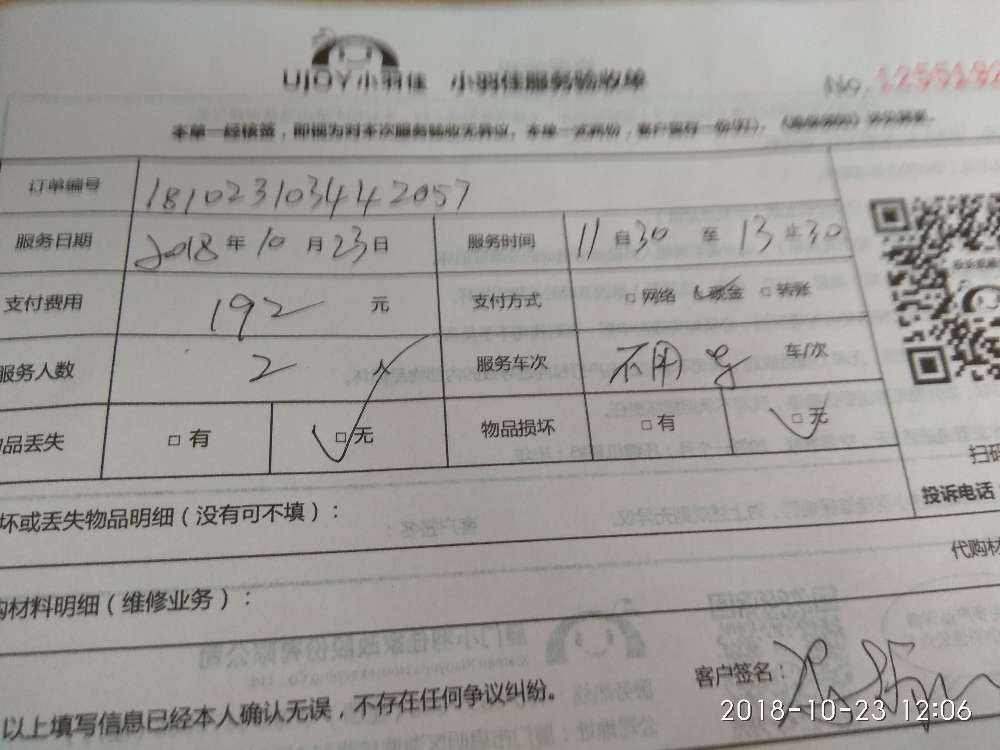 UJOY小羽佳 小羽佳服务验收单
No.
本单一经核签，即视为对本次服务验收无异议。本单一式两份，客户留存一份
订单编号 181023103442057
服务日期 2018年10月23日 服务时间 11自30至13止30
支付费用 192元 支付方式 □网络 □现金 □转账
服务人数 2 服务车次 不用 车/次
品丢失 □有 □无 物品损坏 □有 □无
扫码
坏或丢失物品明细（没有可不填）：
投诉电话
代购材
购材料明细（维修业务）：
客户签名：
以上填写信息已经本人确认无误，不存在任何争议纠纷。
2018-10-23 12:06